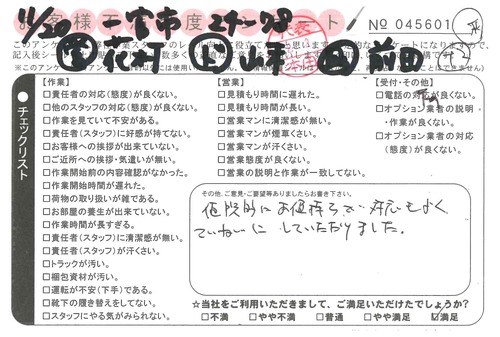 お客様 度 ート
No 045601
11/20 一宮市 24-28
花村 山平 前田
チェックリスト
【作業】
□責任者の対応(態度)が良くない。
□他のスタッフの対応(態度)が良くない。
□作業を見ていて不安がある。
□責任者(スタッフ)に好感が持てない。
□お客様への挨拶が出来ていない。
□ご近所への挨拶・気遣いが無い。
□作業開始前の内容確認がなかった。
□作業開始時間が遅れた。
□荷物の取り扱いが雑である。
□お部屋の養生が出来ていない。
□作業時間が長すぎる。
□責任者(スタッフ)に清潔感が無い。
□責任者(スタッフ)が汗くさい。
□トラックが汚い。
□梱包資材が汚い。
□運転が不安(下手)である。
□靴下の履き替えをしてない。
□スタッフにやる気がみられない。
【営業】
□見積もり時間に遅れた。
□見積もり時間が長い。
□営業マンに清潔感が無い。
□営業マンが煙草くさい。
□営業マンが汗くさい。
□営業態度が良くない。
□営業の説明と作業が一致してない。
【受付・その他】
□電話の対応が良くない。
□オプション業者の説明
・作業が良くない。
□オプション業者の対応
(態度)が良くない。
その他、ご意見・ご要望等ありましたらお書き下さい。
値段的にお値打ちで対応もよく
ていねいにしていただけました。
☆当社をご利用いただきまして、ご満足いただけたでしょうか?
□不満 □やや不満 □普通 □やや満足 ☑満足